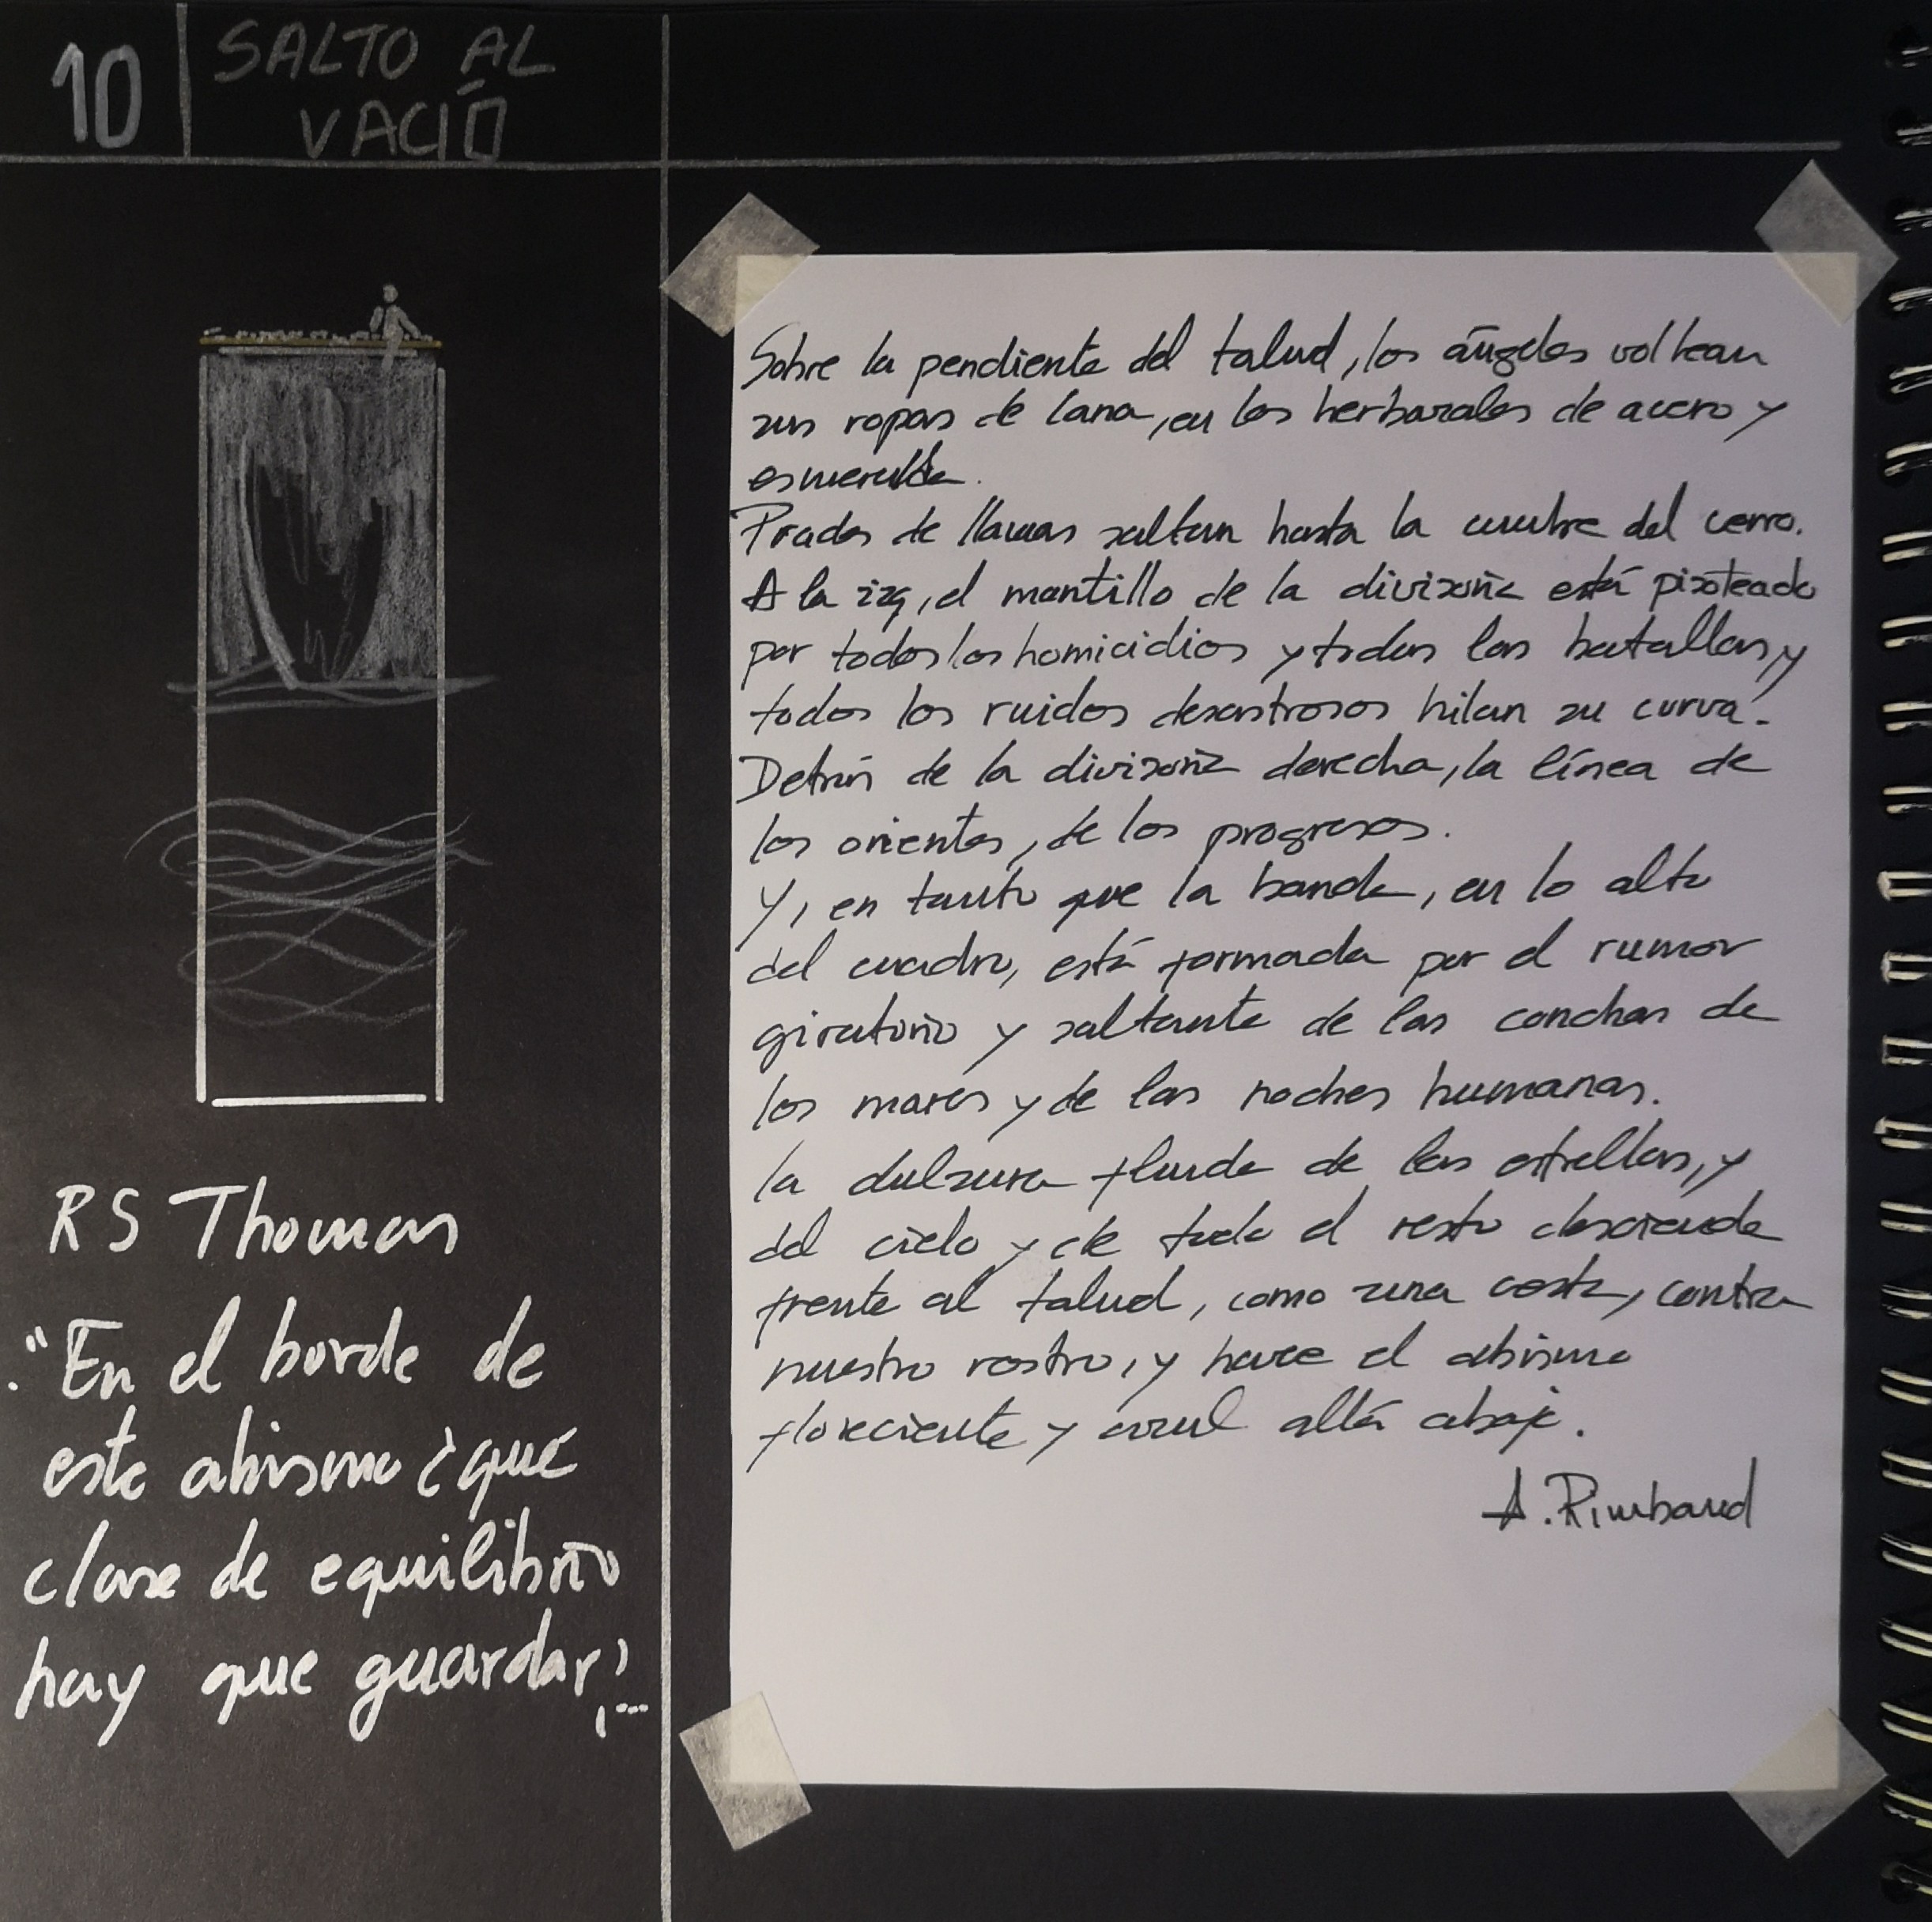 10
SALTO AL
VACÍO
RS Thomas
"En el borde de
este abismo ¿que
clase de equilibrio
hay que guardar?...
Sobre la pendiente del talud, los ángeles voltean
sus ropas de lana, en los herbazales de acero y
esmeralda.
Prados de llamas saltan hasta la cumbre del cerro.
A la izq, el mantillo de la divisoria está pisoteado
por todos los homicidios y todas las batallas, y
todos los ruidos desastrosos hilan su curva.
Detrás de la divisoria derecha, la línea de
los orientes, de los progresos.
Y, en tanto que la banda, en lo alto
del cuadro, está formada por el rumor
giratorio y saltante de las conchas de
los mares y de las noches humanas.
la dulzura fluida de las estrellas, y
del cielo y de todo el resto desciende
frente al talud, como una cesta, contra
nuestro rostro, y hace el abismo
floreciente y azul allá abajo.
A. Rimbaud